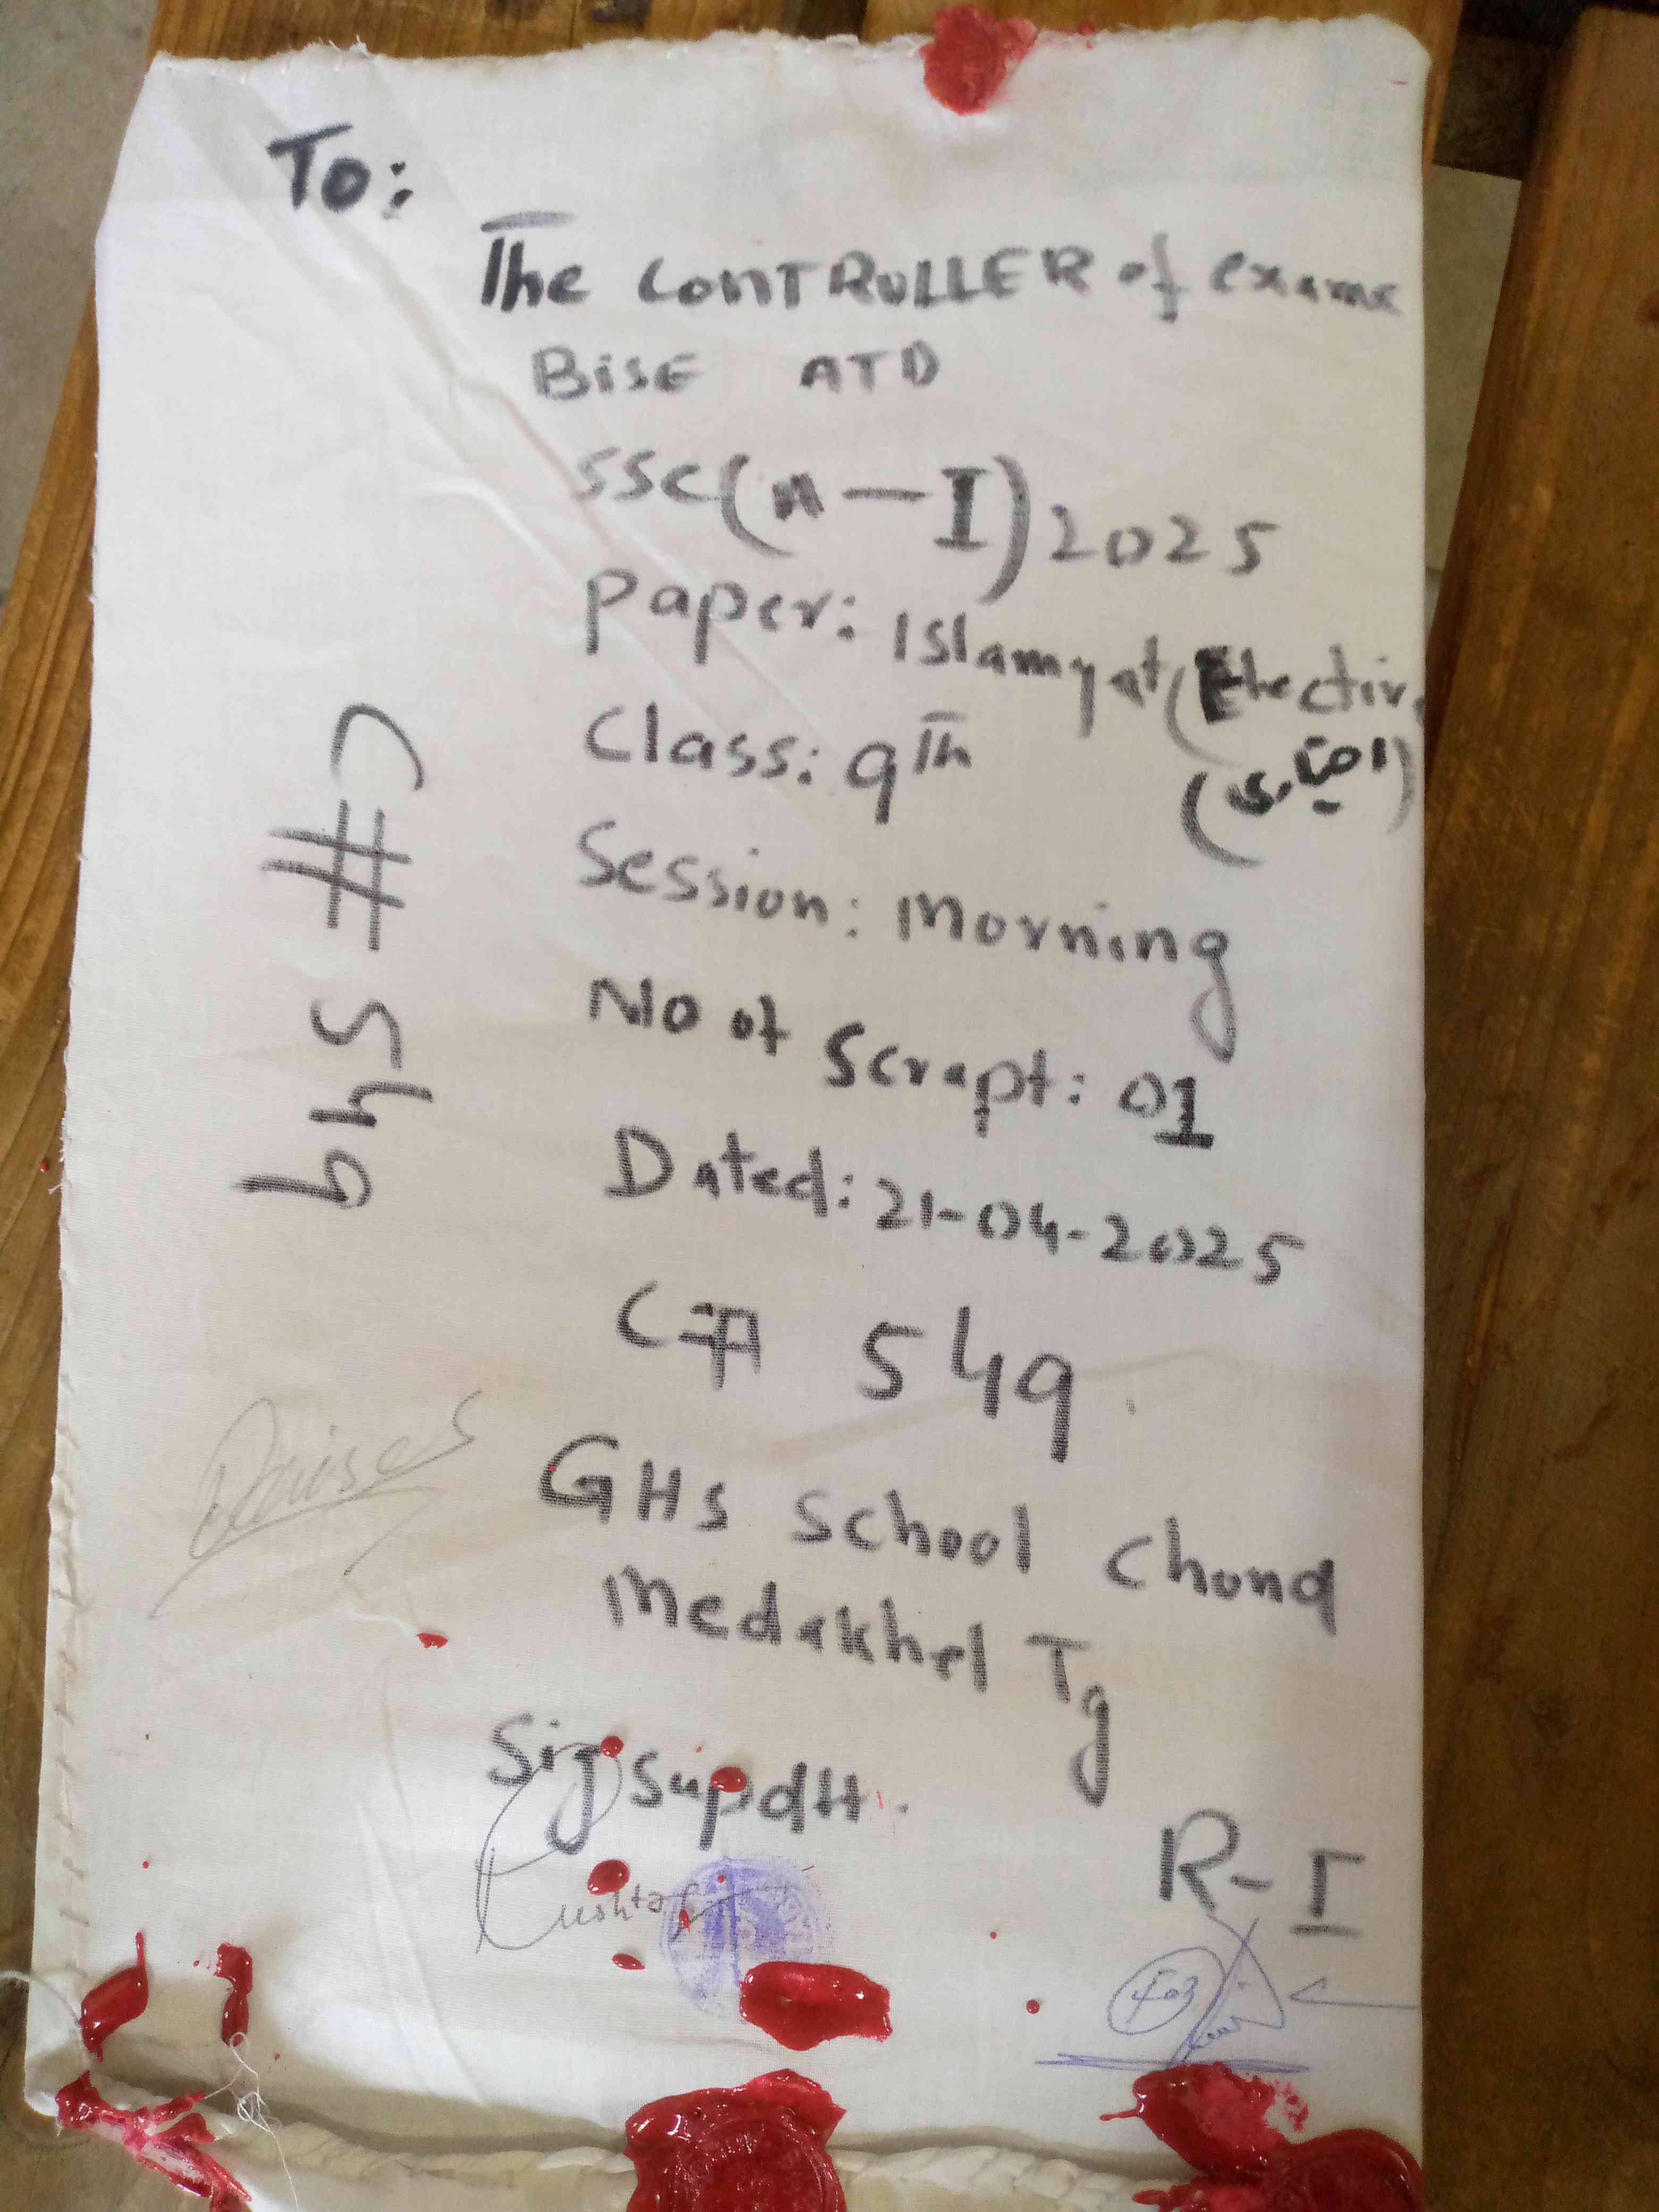 To:
The CONTROLLER of exams
BiSE ATD
SSC (A-I) 2025
Paper: Islamyat (Elective
Class: 9Th
Session: Morning
No of Scrapt: 01
Dated: 21-04-2025
C# 549
GHS School Chond
Medakhel Tg
Sig Supdtt.
R-I
C# 549